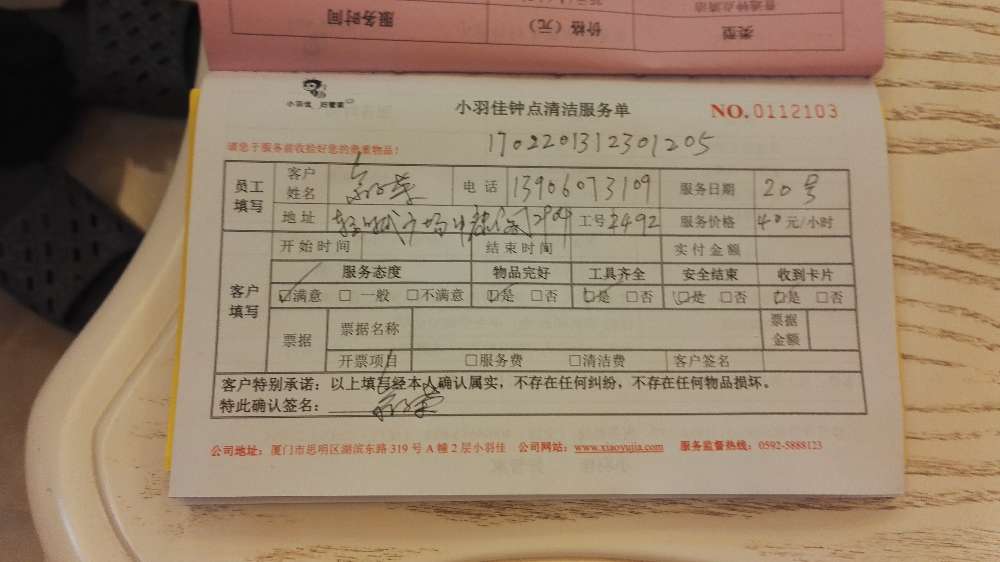 服务时间 价格（元） 类型
小羽佳 好管家
小羽佳钟点清洁服务单 NO. 0112103
1702201312301205
请您于服务前收拾好您的贵重物品！
员工填写 客户姓名 电话 13906073109 服务日期 20号
地址 2904 工号 2492 服务价格 40元/小时
开始时间 结束时间 实付金额
客户填写 服务态度 物品完好 工具齐全 安全结束 收到卡片
☑满意 □一般 □不满意 ☑是 □否 ☑是 □否 ☑是 □否 ☑是 □否
票据 票据名称 票据金额
开票项目 □服务费 □清洁费 客户签名
客户特别承诺：以上填写经本人确认属实，不存在任何纠纷，不存在任何物品损坏。
特此确认签名：
公司地址：厦门市思明区湖滨东路319号A幢2层小羽佳 公司网站：www.xiaoyujia.com 服务监督热线：0592-5888123